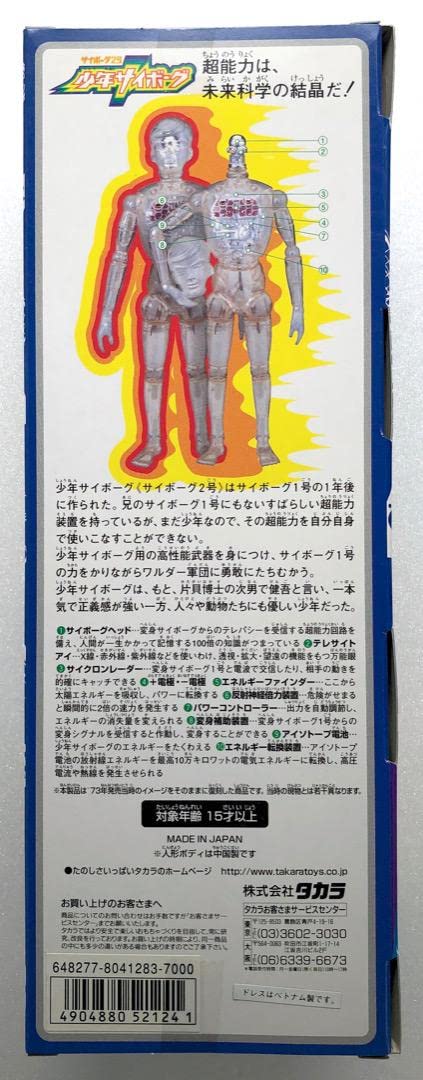 サイボーグ2号
少年サイボーグ
超能力は、
未来科学の結晶だ!
①
②
③
⑥
⑤
④
⑨
⑦
⑧
⑩
少年サイボーグ《サイボーグ2号》はサイボーグ1号の1年後
に作られた。兄のサイボーグ1号にもないすばらしい超能力
装置を持っているが、まだ少年なので、その超能力を自分自身
で使いこなすことができない。
少年サイボーグ用の高性能武器を身につけ、サイボーグ1号
の力をかりながらワルダー軍団に勇敢にたちむかう。
少年サイボーグは、もと、片貝博士の次男で健吾と言い、一本
気で正義感が強い一方、人々や動物たちにも優しい少年だった。
❶サイボーグヘッド…変身サイボーグからのテレパシーを受信する超能力回路を
備え、人間が一生かかって記憶する100倍の知識がつまっている ❷テレサイト
アイ…X線・赤外線・紫外線などを使いわけ、透視・拡大・望遠の機能をもつ万能眼
❸サイクロンレーダー…変身サイボーグ1号と電波で交信したり、相手の動きを
的確にキャッチできる ❹+電極・-電極 ❺エネルギーファインダー…ここから
太陽エネルギーを吸収し、パワーに転換する ❻反射神経倍力装置…危険がせまる
と瞬間的に2倍の速力を発生する ❼パワーコントローラー…出力を自動調節し、
エネルギーの消失量を変えられる ❽変身補助装置…変身サイボーグ1号からの
変身シグナルを受信すると作動し、変身することができる ❾アイソトープ電池…
少年サイボーグのエネルギーをたくわえる ❿エネルギー転換装置…アイソトープ
電池の放射線エネルギーを最高10万キロワットの電気エネルギーに転換し、高圧
電流や熱線を発生させられる
※本製品は'73年発売当時のイメージをそのままに復刻した商品です。当時の現物とは若干異なります。
対象年齢 15才以上
MADE IN JAPAN
※人形ボディは中国製です
●たのしさいっぱいタカラのホームページ http://www.takaratoys.co.jp
お買い上げのお客さまへ
商品についてのお問い合わせはお手数ですが「お客さまサー
ビスセンター」までお願いします。
タカラではより安全で楽しいおもちゃづくりを目指して常に研
究、改良を行っております。お買い上げの時期により、同一商品
の中にも多少の違いがある場合もありますのでご了承下さい。
株式会社タカラ
タカラお客さまサービスセンター
東京 〒125-8503 葛飾区青戸4-19-16
(03)3602-3030
大阪 〒564-0063 吹田市江坂町1-17-14
江坂吉川ビル2F
(06)6339-6673
●電話受付時間 月〜金曜日(祭日を除く)10時〜17時
648277-8041283-7000
4904880 521241
ドレスはベトナム製です。